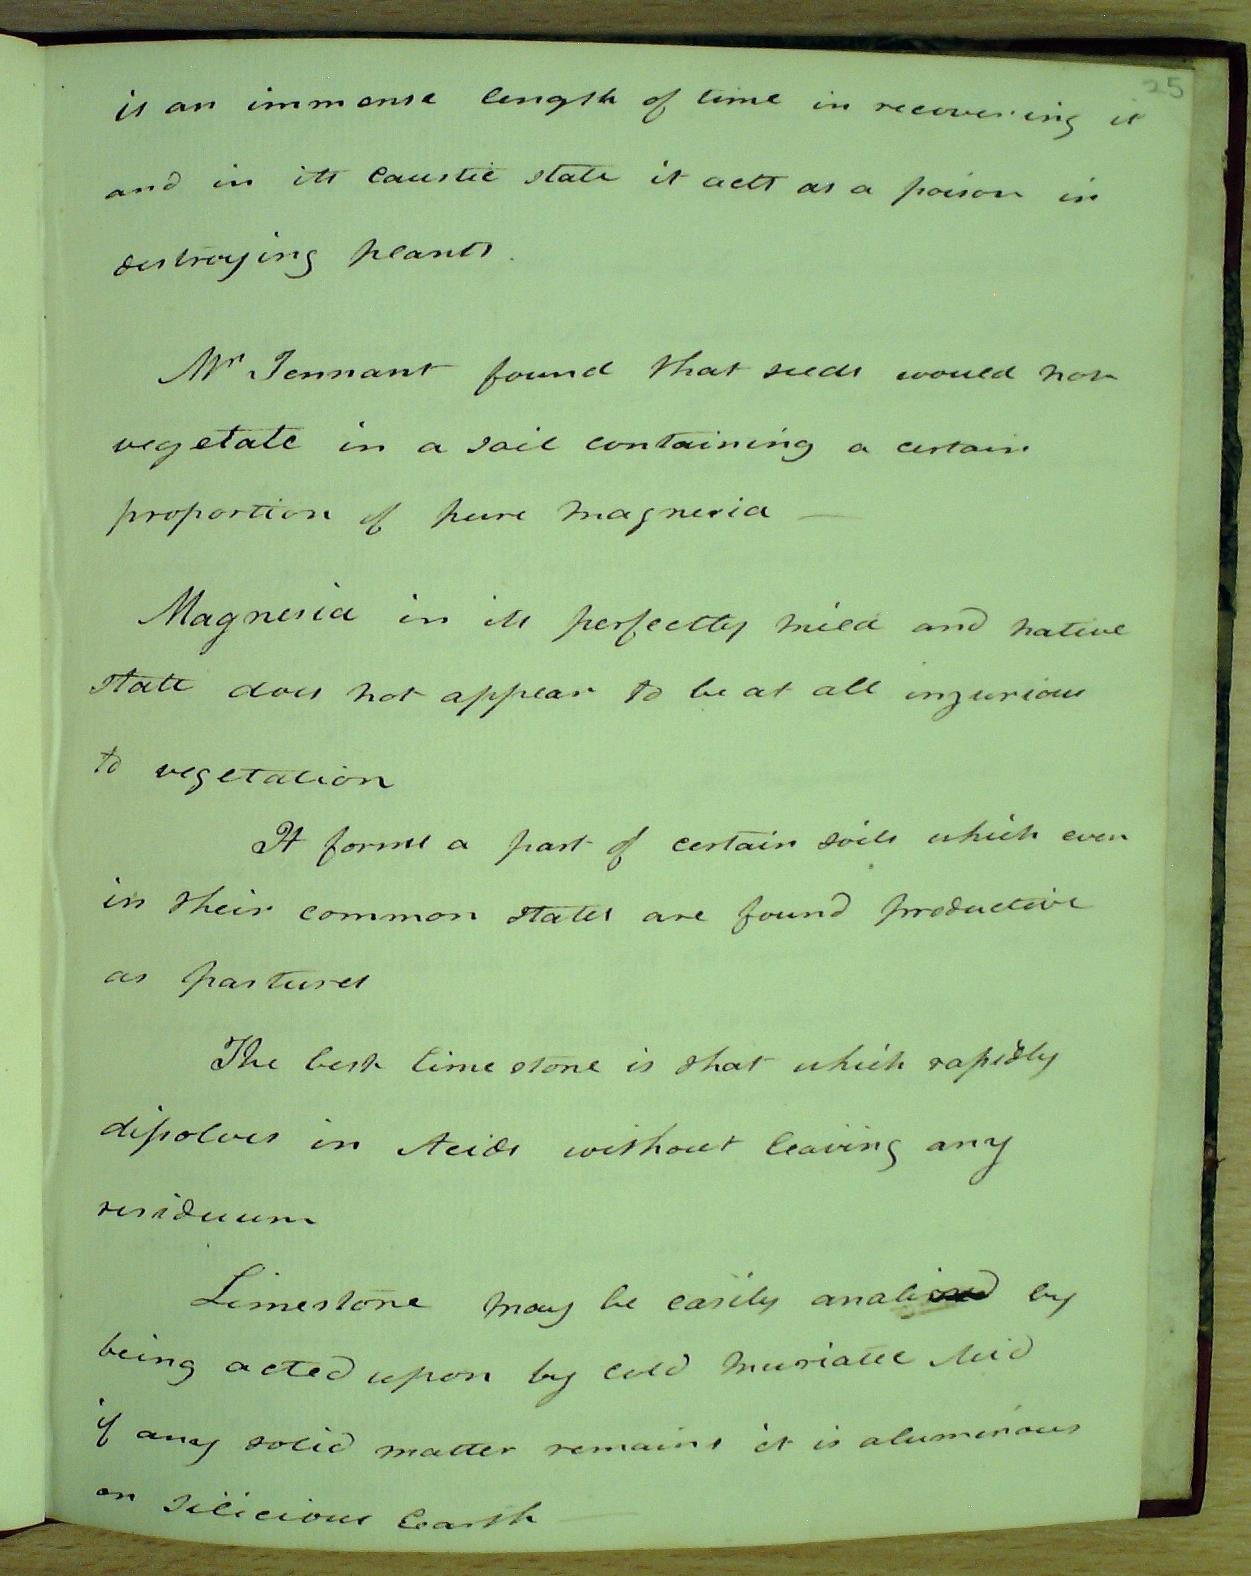 25
is an immense length of time in recovering it
and in its caustic state it acts as a poison in
destroying plants.
Mr Tennant found that seeds would not
vegetate in a soil containing a certain
proportion of pure magnesia —
Magnesia in its perfectly mild and native
state does not appear to be at all injurious
to vegetation
It forms a part of certain soils which even
in their common states are found productive
as pastures
The best limestone is that which rapidly
dissolves in Acids without leaving any
residuum
Limestone may be easily analised by
being acted upon by cold muriatic Acid
if any solid matter remains it is aluminous
or silicious Earth —